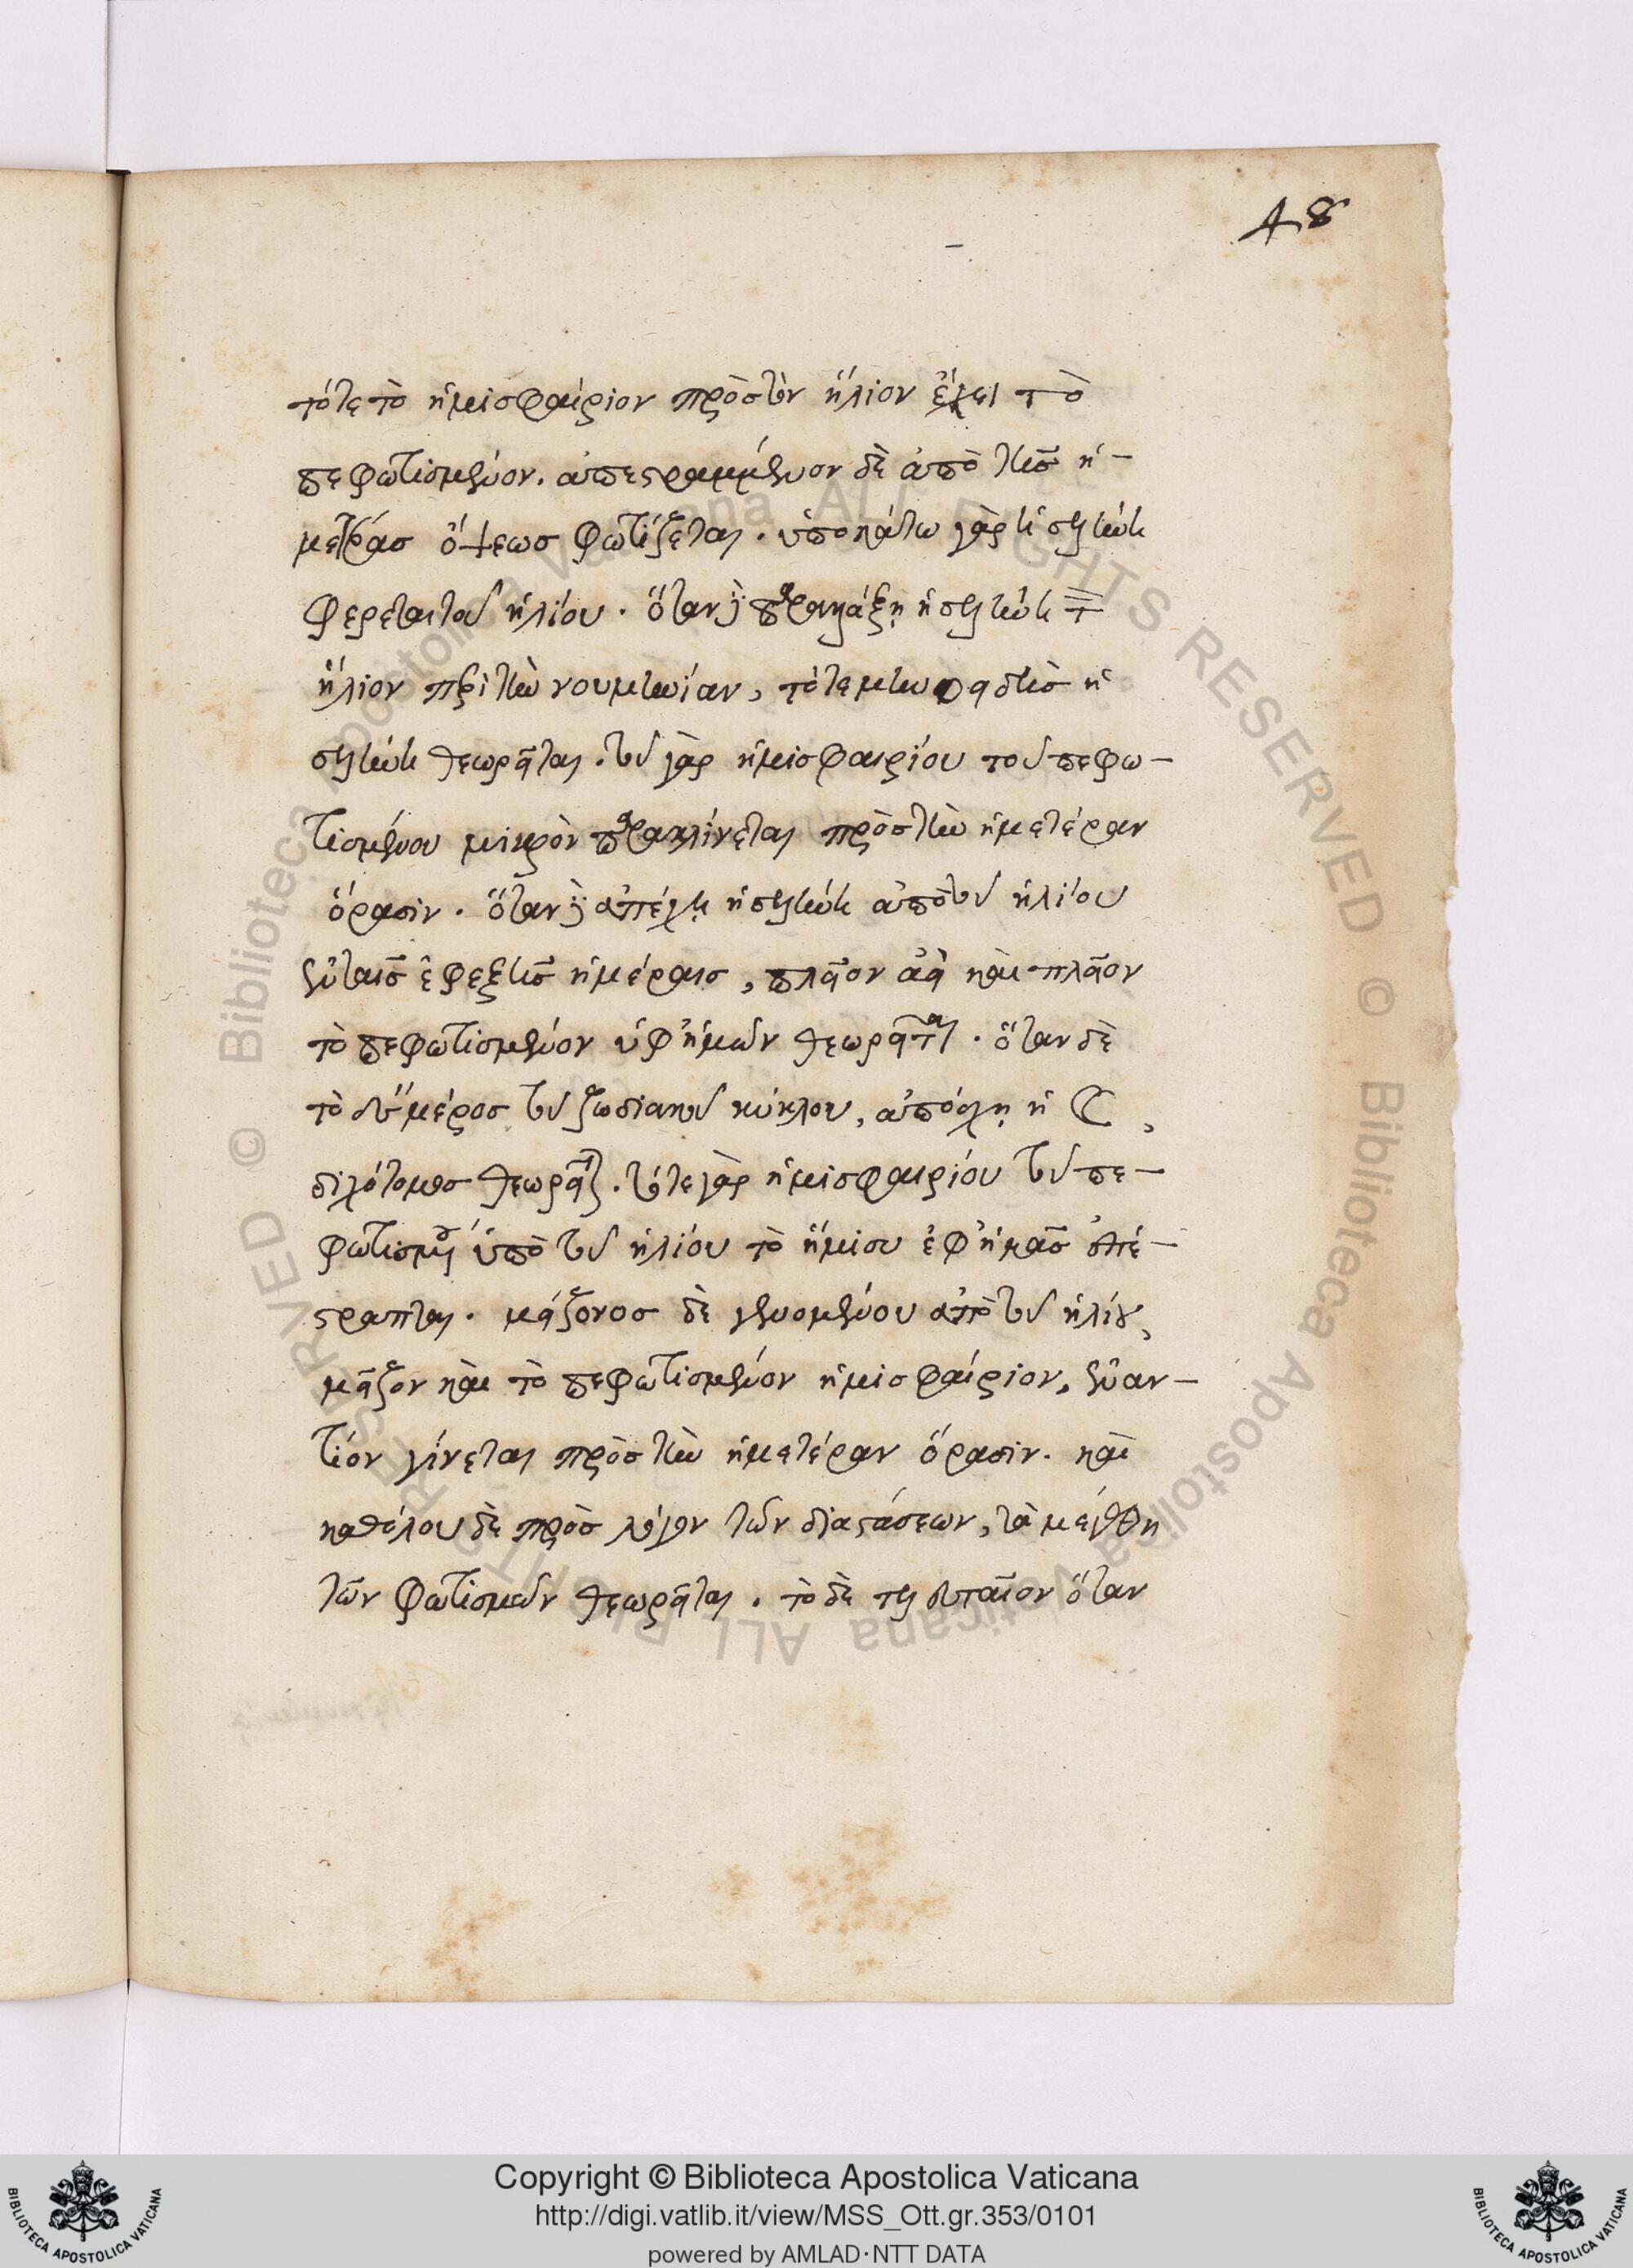 48
τότε τὸ ἡμισφαίριον πρὸς τὸν ἥλιον ἔχει τὸ
πεφωτισμένον. ἀπεστραμμένον δὲ ἀπὸ τῆς ἡ-
μετέρας ὄψεως φωτίζεται. ὑποκάτω γὰρ ἡ σελήνη
φέρεται τοῦ ἡλίου. ὅταν δὲ παραλλάξῃ ἡ σελήνη τὸν
ἥλιον περὶ τὴν νουμηνίαν, τότε μηνοειδὴς ἡ
σελήνη θεωρεῖται. τοῦ γὰρ ἡμισφαιρίου τοῦ πεφω-
τισμένου μικρὸν παρακλίνεται πρὸς τὴν ἡμετέραν
ὅρασιν. ὅταν δὲ ἀπέχῃ ἡ σελήνη ἀπὸ τοῦ ἡλίου
ἐν ταῖς ἐφεξῆς ἡμέραις, πλεῖον ἀεὶ καὶ πλεῖον
τὸ πεφωτισμένον ὑφ' ἡμῶν θεωρεῖται. ὅταν δὲ
τὸ δ΄ μέρος τοῦ ζωδιακοῦ κύκλου, ἀπόσχῃ ἡ ☾,
διχότομος θεωρεῖται. τότε γὰρ ἡμισφαιρίου τοῦ πε-
φωτισμένου ὑπὸ τοῦ ἡλίου τὸ ἥμισυ ἐφ' ἡμᾶς ἐπέ-
στραπται. μείζονος δὲ γενομένου ἀπὸ τοῦ ἡλίου,
μεῖζον καὶ τὸ πεφωτισμένον ἡμισφαίριον, ἐναν-
τίον γίνεται πρὸς τὴν ἡμετέραν ὅρασιν. καὶ
καθόλου δὲ πρὸς λόγον τῶν διαστάσεων, τὰ μεγέθη
τῶν φωτισμῶν θεωρεῖται. τὸ δὲ τελευταῖον ὅταν
© Biblioteca Apostolica Vaticana ALL RIGHTS RESERVED
© Biblioteca Apostolica Vaticana ALL RIGHTS RESERVED
BIBLIOTECA APOSTOLICA VATICANA
Copyright © Biblioteca Apostolica Vaticana
http://digi.vatlib.it/view/MSS_Ott.gr.353/0101
powered by AMLAD·NTT DATA
BIBLIOTECA APOSTOLICA VATICANA